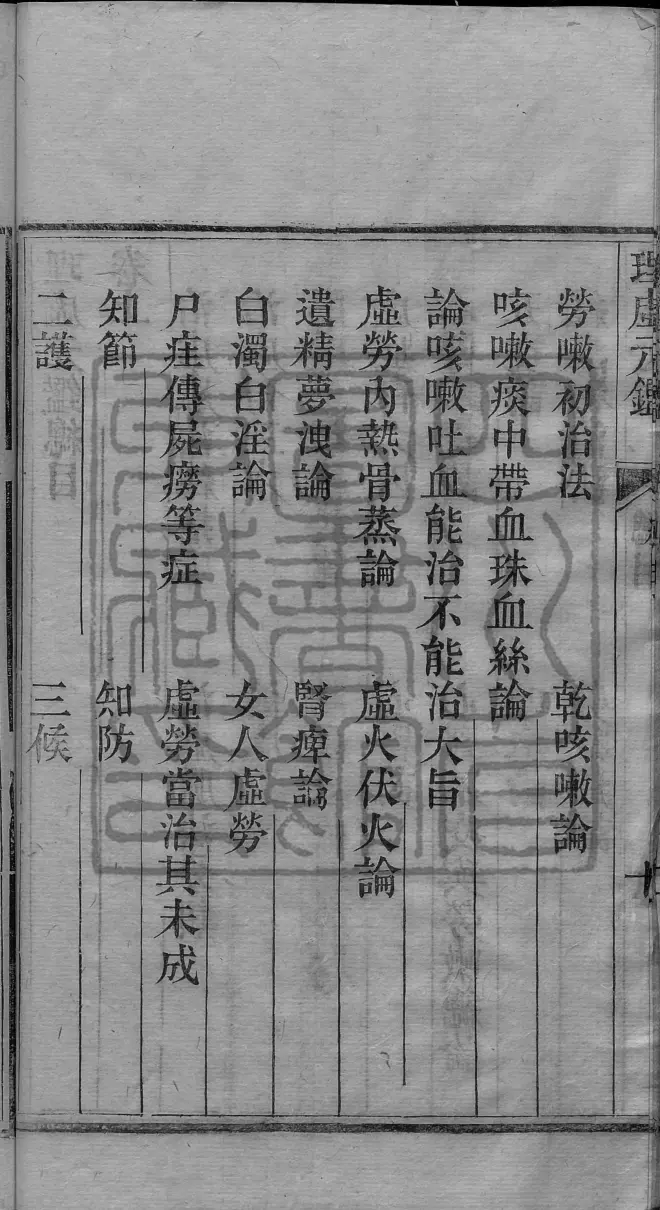 理虛元鑑
勞嗽初治法 乾咳嗽論
咳嗽痰中帶血珠血絲論
論咳嗽吐血能治不能治大旨
虛勞內熱骨蒸論 虛火伏火論
遺精夢洩論 腎痺論
白濁白淫論 女人虛勞
尸疰傳屍癆等症 虛勞當治其未成
知節 知防
二護 三候